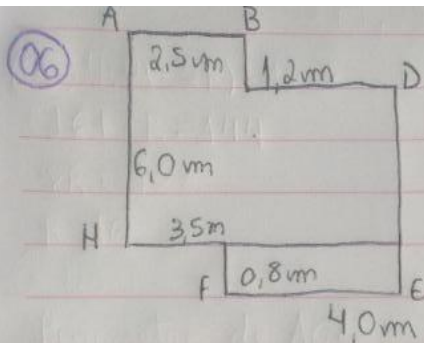 A B
06 2,5m 1,2m D
6,0m
H 3,5m
F 0,8m E
4,0m